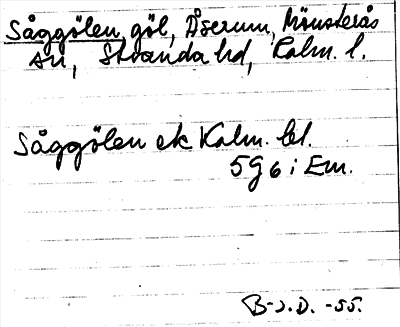 Såggölen, göl, Åserum, Mönsterås
sn, Stranda hd, Kalm. l.
Såggölen ek Kalm. bl.
5G 6 i Em.
B-J.D. -55.